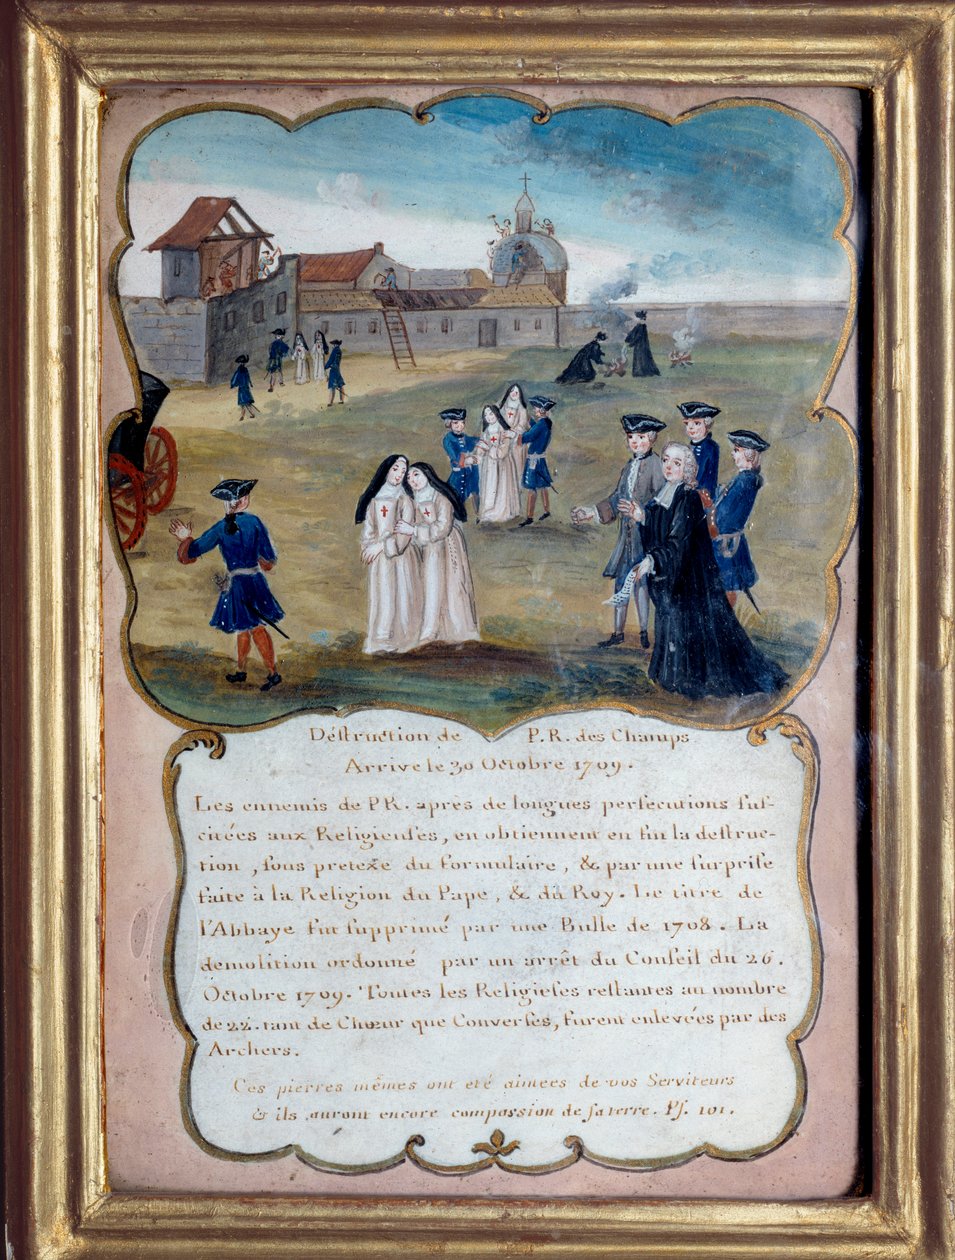 Déstruction de P.R. des Champs
Arrive le 30 Octobre 1709.
Les ennemis de PR. après de longues perſecutions ſuſ-
citées aux Religieuſes, en obtiennent en fin la deſtruc-
tion, ſous pretexe du formulaire, & par une ſurpriſe
faite à la Religion du Pape, & du Roy. Le titre de
l'Abbaye fut ſupprimé par une Bulle de 1708. La
demolition ordonné par un arrêt du Conſeil du 26.
Octobre 1709. Toutes les Religieſes reſtantes au nombre
de 22. tant de Chœur que Converſes, furent enlevées par des
Archers.
Ces pierres mêmes ont été aimées de vos Serviteurs
& ils auront encore compassion de ſa terre. Pſ. 101.